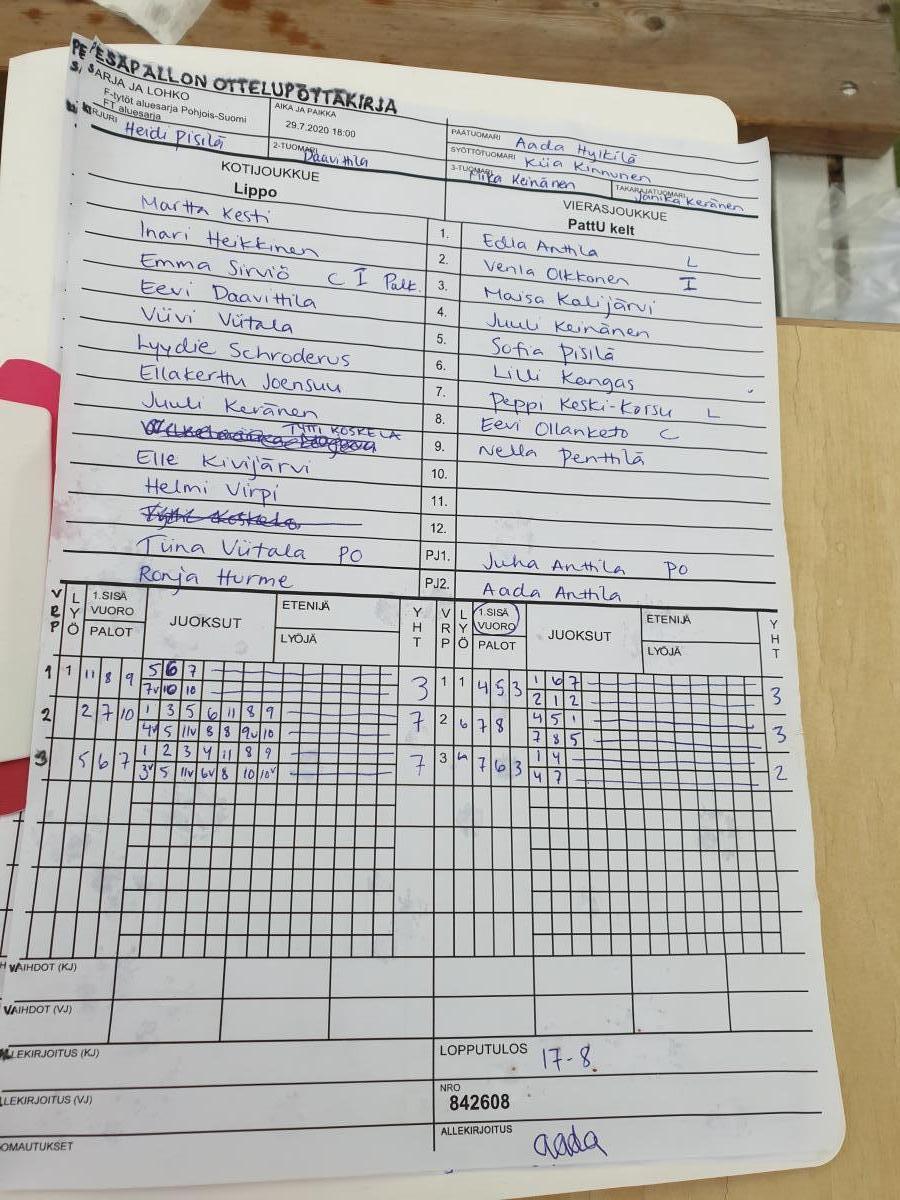 PESÄPALLON OTTELUPÖYTÄKIRJA
SARJA JA LOHKO
F-tytöt aluesarja Pohjois-Suomi
FT aluesarja
AIKA JA PAIKKA
29.7.2020 18:00
PÄÄTUOMARI Aada Hylkilä
SYÖTTÖTUOMARI Kiia Kinnunen
KIRJURI Heidi Pisilä
2-TUOMARI Daavittila
3-TUOMARI Mika Keinänen
TAKARAJATUOMARI Janika Keränen
KOTIJOUKKUE
Lippo
VIERASJOUKKUE
PattU kelt
Martta Kesti 1. Edla Anttila L
Inari Heikkinen 2. Venla Olkkonen I
Emma Sirviö C I Palk. 3. Maisa Kalijärvi
Eevi Daavittila 4. Juuli Keinänen
Viivi Viitala 5. Sofia Pisilä
Lyydie Schroderus 6. Lilli Kangas
Ellakerttu Joensuu 7. Peppi Keski-Korsu L
Juuli Keränen 8. Eevi Ollanketo C
TYTTI KOSKELA 9. Nella Penttilä
Elle Kivijärvi 10.
Helmi Virpi 11.
Tytti Koskela 12.
Tiina Viitala PO PJ1. Juha Anttila PO
Ronja Hurme PJ2. Aada Anttila
VRP LYÖ 1.SISÄ VUORO PALOT JUOKSUT ETENIJÄ LYÖJÄ YHT VRP LYÖ 1.SISÄ VUORO PALOT JUOKSUT ETENIJÄ LYÖJÄ YHT
1 1 11 8 9 5 6 7 3 1 1 4 5 3 1 6 7 3
7v 10 10 2 1 2
2 2 7 10 1 3 5 6 11 8 9 7 2 6 7 8 4 5 1 3
4v 5 11v 8 8 9v 10 7 8 5
3 5 6 7 1 2 3 4 11 8 9 7 3 7 6 3 1 4 2
3v 5 11v 6v 8 10 10v 4 7
VAIHDOT (KJ)
VAIHDOT (VJ)
ALLEKIRJOITUS (KJ)
LOPPUTULOS 17-8
ALLEKIRJOITUS (VJ)
NRO
842608
HUOMAUTUKSET
ALLEKIRJOITUS aada